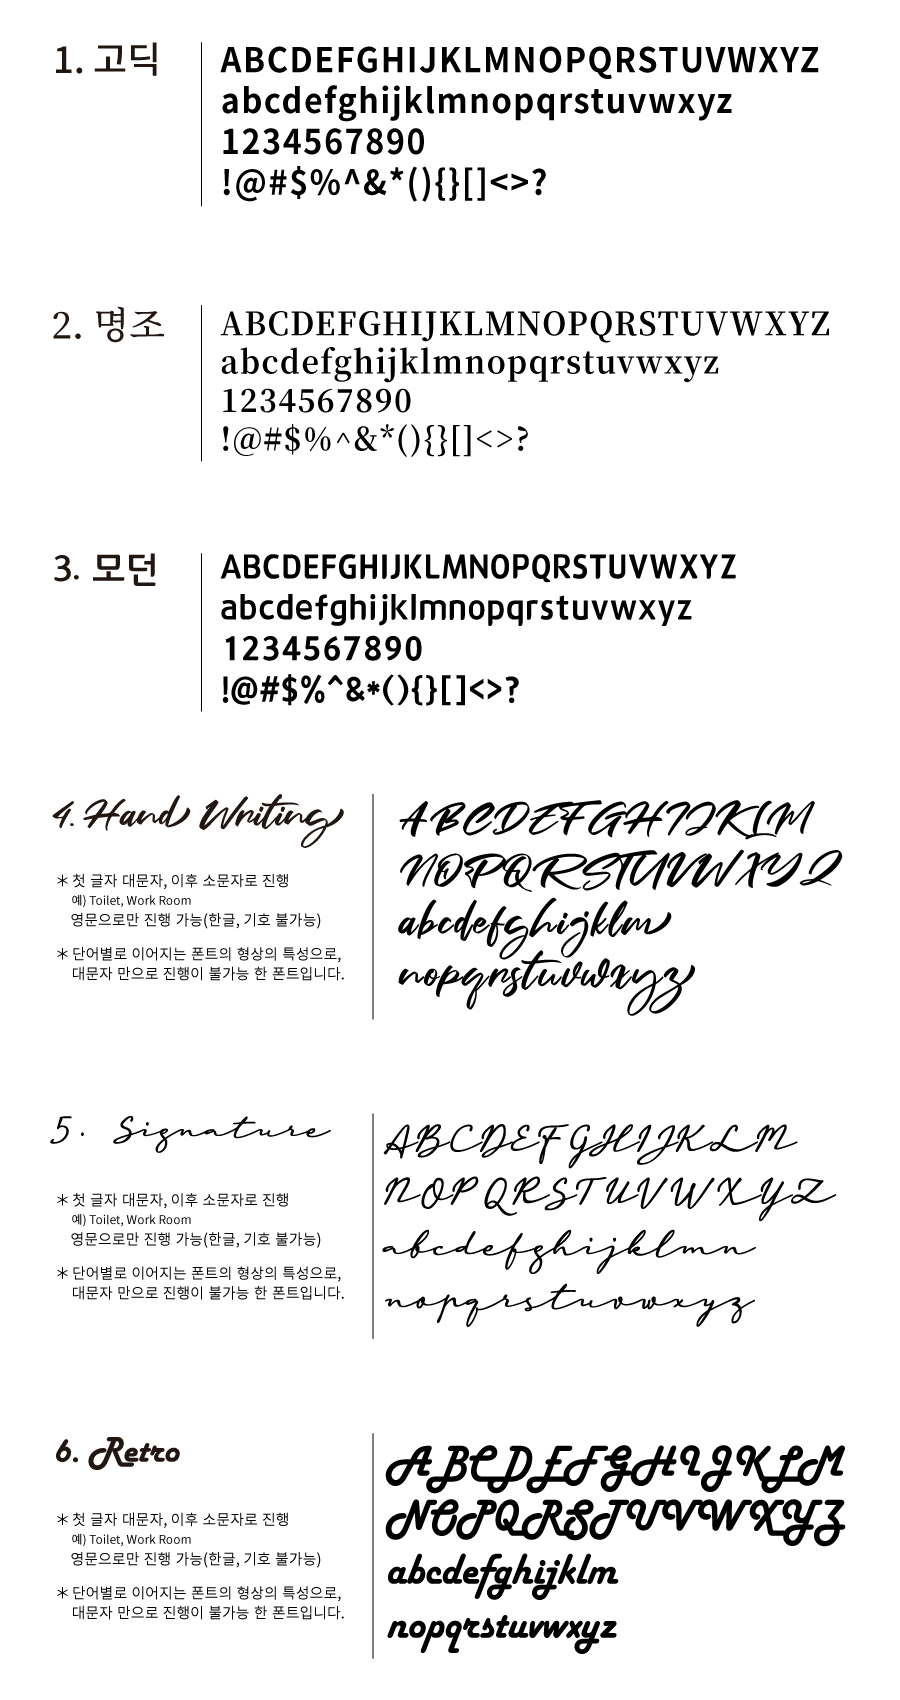 1. 고딕
ABCDEFGHIJKLMNOPQRSTUVWXYZ
abcdefghijklmnopqrstuvwxyz
1234567890
!@#$%^&*(){}[]<>?
2. 명조
ABCDEFGHIJKLMNOPQRSTUVWXYZ
abcdefghijklmnopqrstuvwxyz
1234567890
!@#$%^&*(){}[]<>?
3. 모던
ABCDEFGHIJKLMNOPQRSTUVWXYZ
abcdefghijklmnopqrstuvwxyz
1234567890
!@#$%^&*(){}[]<>?
4. Hand Writing
* 첫 글자 대문자, 이후 소문자로 진행
예) Toilet, Work Room
영문으로만 진행 가능(한글, 기호 불가능)
* 단어별로 이어지는 폰트의 형상의 특성으로,
대문자 만으로 진행이 불가능 한 폰트입니다.
ABCDEFGHIJKLM
NOPQRSTUVWXYZ
abcdefghijklm
nopqrstuvwxyz
5. Signature
* 첫 글자 대문자, 이후 소문자로 진행
예) Toilet, Work Room
영문으로만 진행 가능(한글, 기호 불가능)
* 단어별로 이어지는 폰트의 형상의 특성으로,
대문자 만으로 진행이 불가능 한 폰트입니다.
ABCDEFGHIJKLM
NOPQRSTUVWXYZ
abcdefghijklmn
nopqrstuvwxyz
6. Retro
* 첫 글자 대문자, 이후 소문자로 진행
예) Toilet, Work Room
영문으로만 진행 가능(한글, 기호 불가능)
* 단어별로 이어지는 폰트의 형상의 특성으로,
대문자 만으로 진행이 불가능 한 폰트입니다.
ABCDEFGHIJKLM
NOPQRSTUVWXYZ
abcdefghijklm
nopqrstuvwxyz